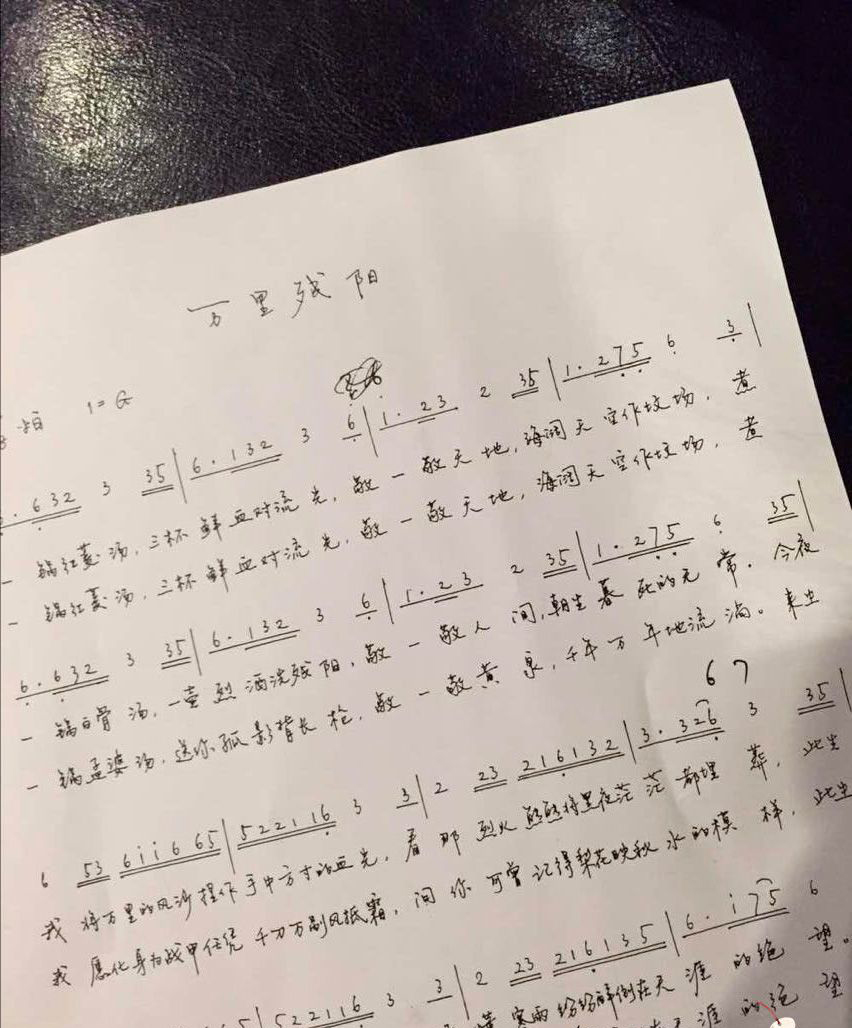 万里残阳
拍 1=G
6 3 2 3 3 5 | 6 · 1 3 2 3 6 | 1 · 2 3 2 3 5 | 1 · 2 7 5 6 3 |
一锅红蔓汤,三杯鲜血对流光,敬一敬天地,海阔天空作坟场,煮
一锅红蔓汤,三杯鲜血对流光,敬一敬天地,海阔天空作坟场,煮
6 · 6 3 2 3 3 5 | 6 · 1 3 2 3 6 | 1 · 2 3 2 3 5 | 1 · 2 7 5 6 3 5 |
一锅白骨汤,一壶烈酒浇残阳,敬一敬人间,朝生暮死的无常。今夜
一锅孟婆汤,送你孤影背长枪,敬一敬黄泉,千年万年地流淌。来生
6 7
6 5 3 6 i i 6 6 5 | 5 2 2 1 1 6 3 3 | 2 2 3 2 1 6 1 3 2 | 3 · 3 2 6 3 3 5 |
我将万里的风沙握作手中方寸的血光,看那烈火熊熊将黑夜茫茫都埋葬,此生
我愿化身为战甲任凭千刀万剐风抵霜,问你可曾记得梨花映秋水的模样,此生
5 | 5 2 2 1 1 6 3 3 | 2 2 3 2 1 6 1 3 5 | 6 · i 7 5 6
寒雨纷纷醉倒在天涯的绝望。
天涯的绝望